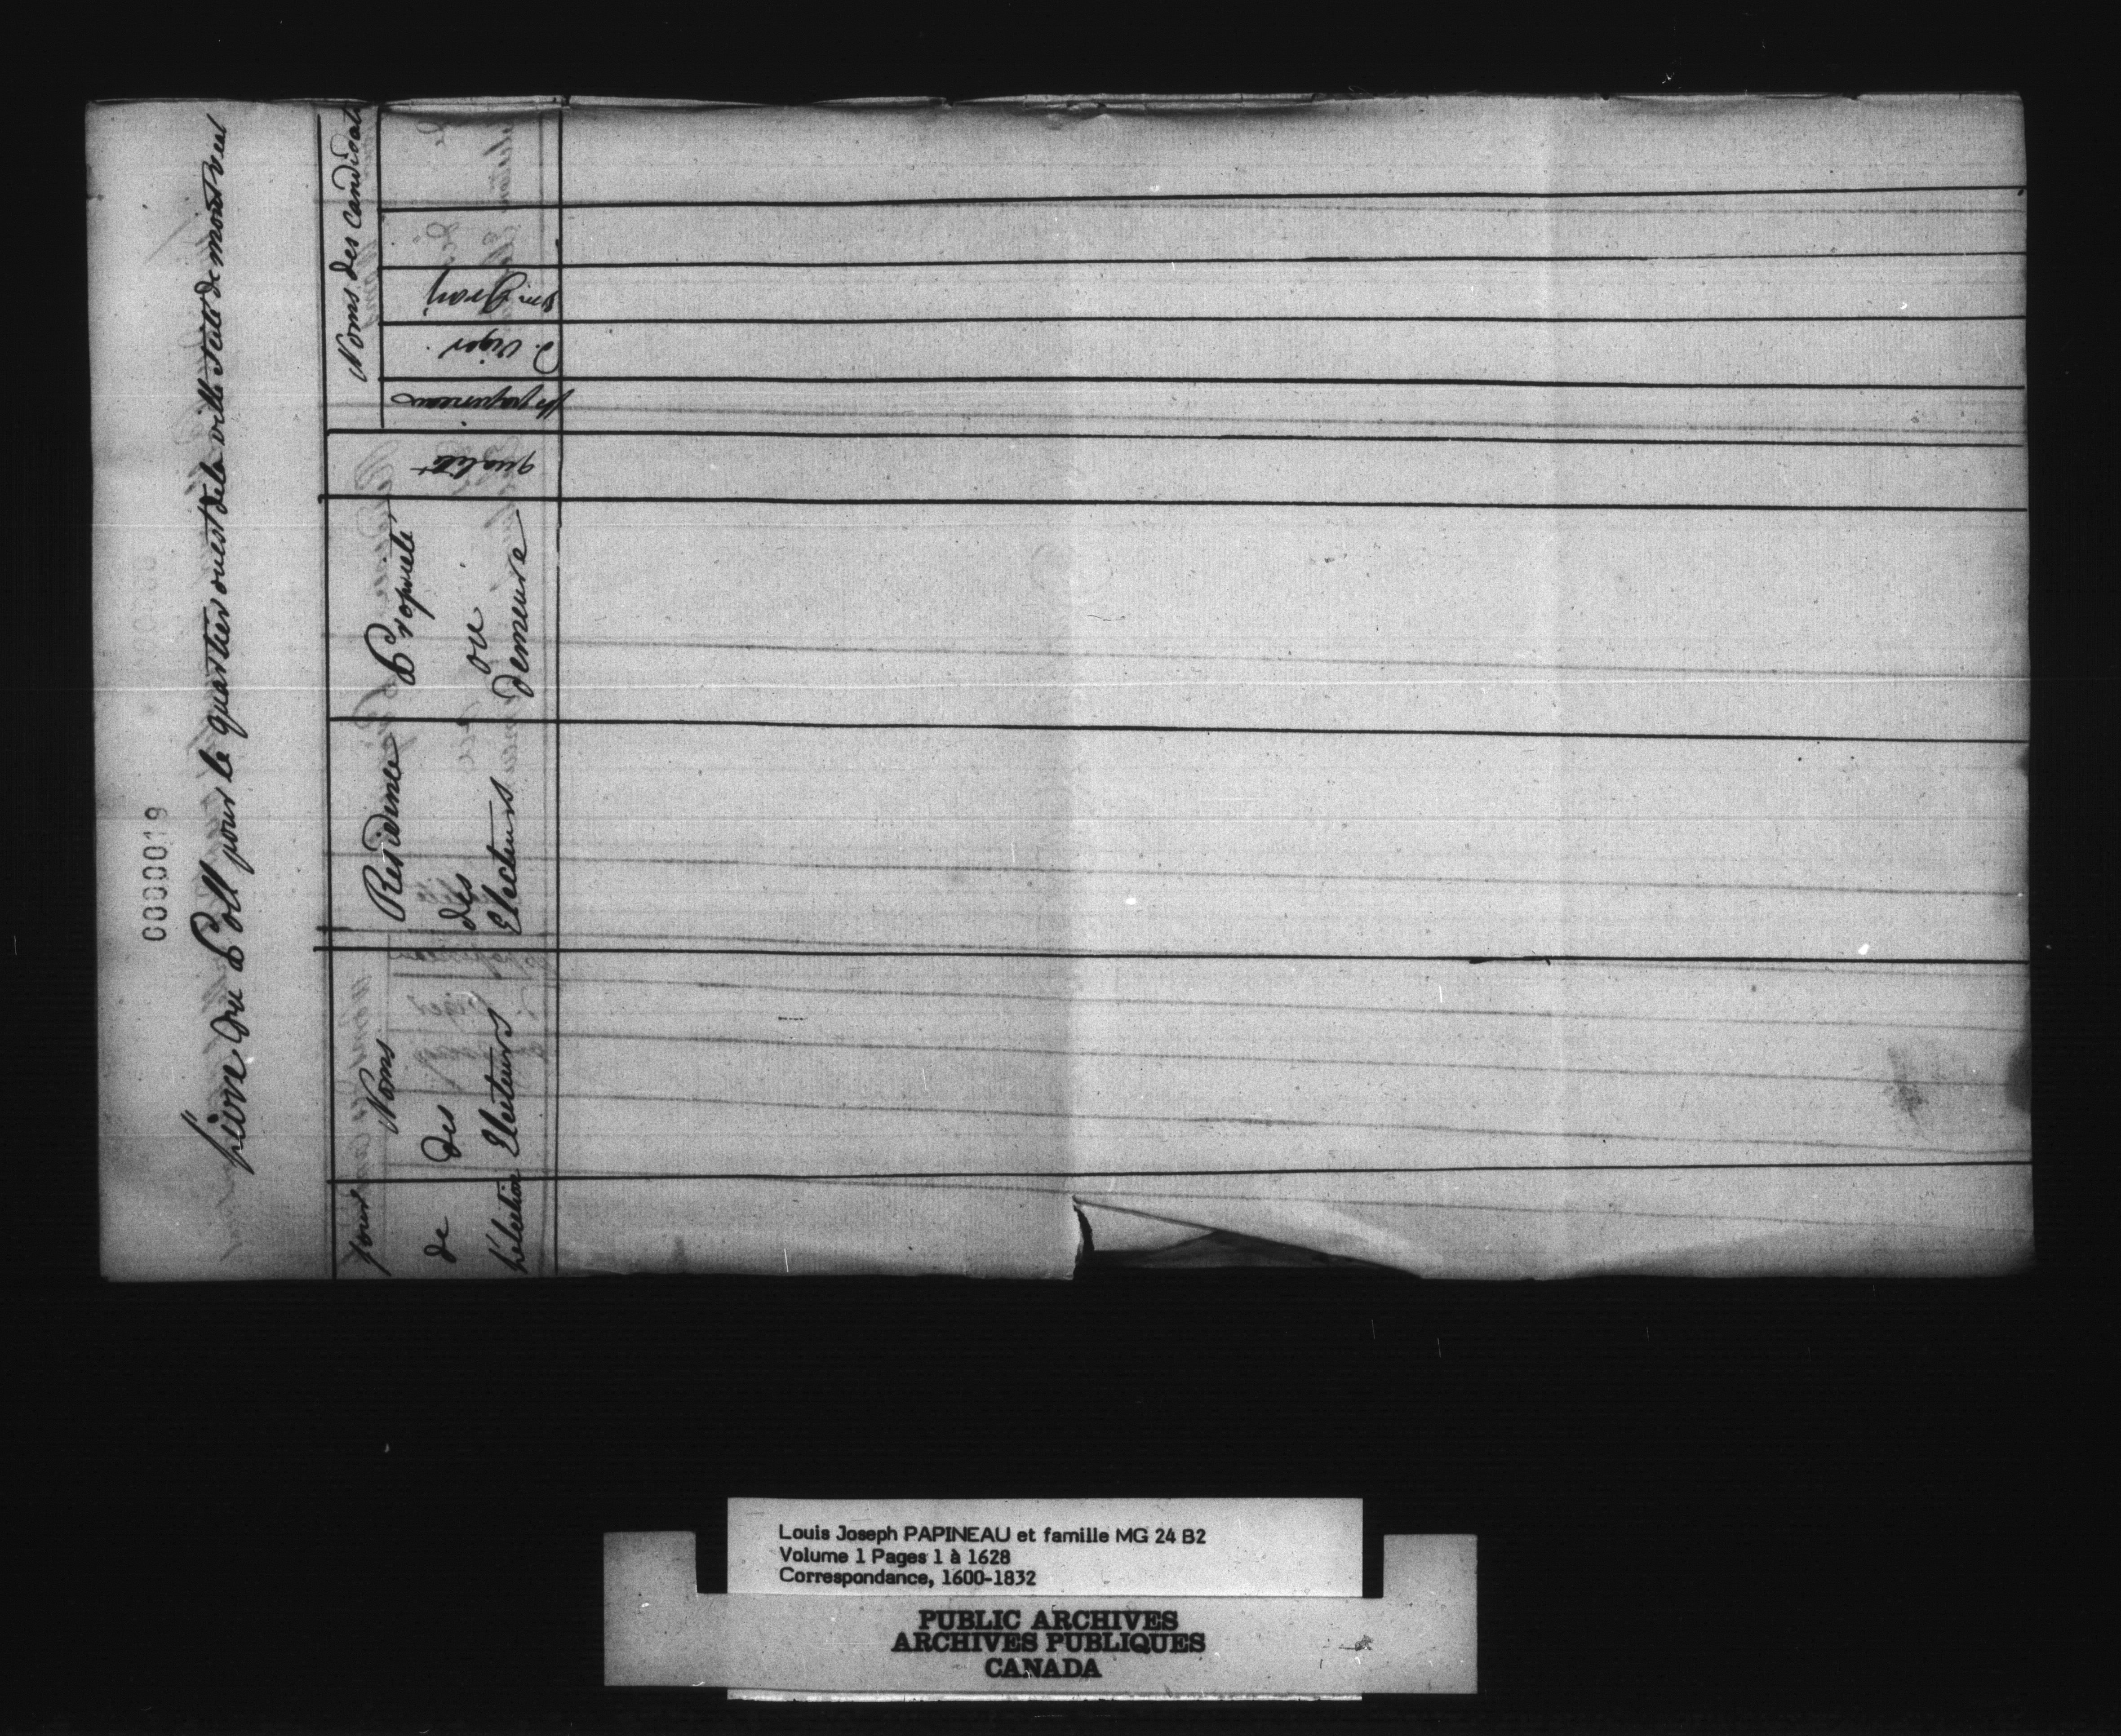 0000019
Livre du Poll pour le quartier ouest de la ville et cité de montreal
Jours
de
l'election
Noms
des
Electeurs
Residence
des
Electeurs
Propriété
ou
demeure
qualité
Noms des Candidats
Js papineau
D. Viger
Gray
Louis Joseph PAPINEAU et famille MG 24 B2
Volume 1 Pages 1 à 1628
Correspondance, 1600-1832
PUBLIC ARCHIVES
ARCHIVES PUBLIQUES
CANADA